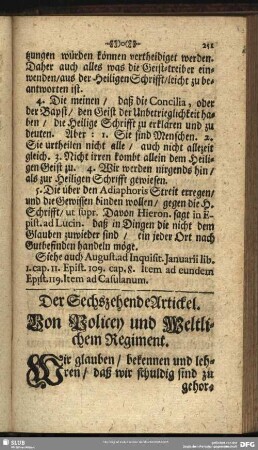 251
tzungen würden können vertheidiget werden.
Daher auch alles was die Geist-treiber ein-
wenden/aus der Heiligen Schrifft/leicht zu be-
antworten ist.
4. Die meinen / daß die Concilia, oder
der Bapst / den Geist der Unbetrieglichkeit ha-
ben / die Heilige Schrifft zu erklären und zu
deuten. Aber : 1. Sie sind Menschen. 2.
Sie urtheilen nicht alle / auch nicht allezeit
gleich. 3. Nicht irren kombt allein dem Heili-
gen Geist zu. 4. Wir werden nirgends hin /
als zur Heiligen Schrifft gewiesen.
5. Die über den Adiaphoris Streit erregen/
und die Gewissen binden wollen / gegen die H.
Schrifft / ut supr. Davon Hieron. sagt in E-
pist. ad Lucin. daß in Dingen die nicht dem
Glauben zuwieder sind / ein jeder Ort nach
Gutbefinden handeln möge.
Siehe auch August. ad Inquisit. Januarii lib.
1. cap. 11. Epist. 109. cap. 8. Item ad eundem
Epist. 119. Item ad Casulanum.
Der Sechszehende Artickel.
Von Policey und Weltli-
chem Regiment.
Wir glauben / bekennen und leh-
ren / daß wir schuldig sind zu
gehor-
SLUB